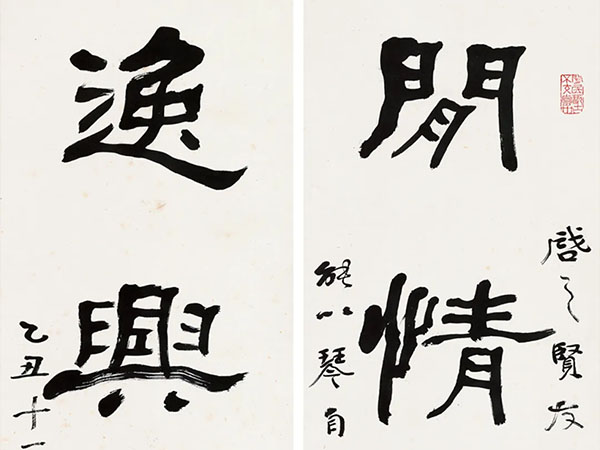 啓之賢友
閒情
能以琴自
逸興
乙丑十一